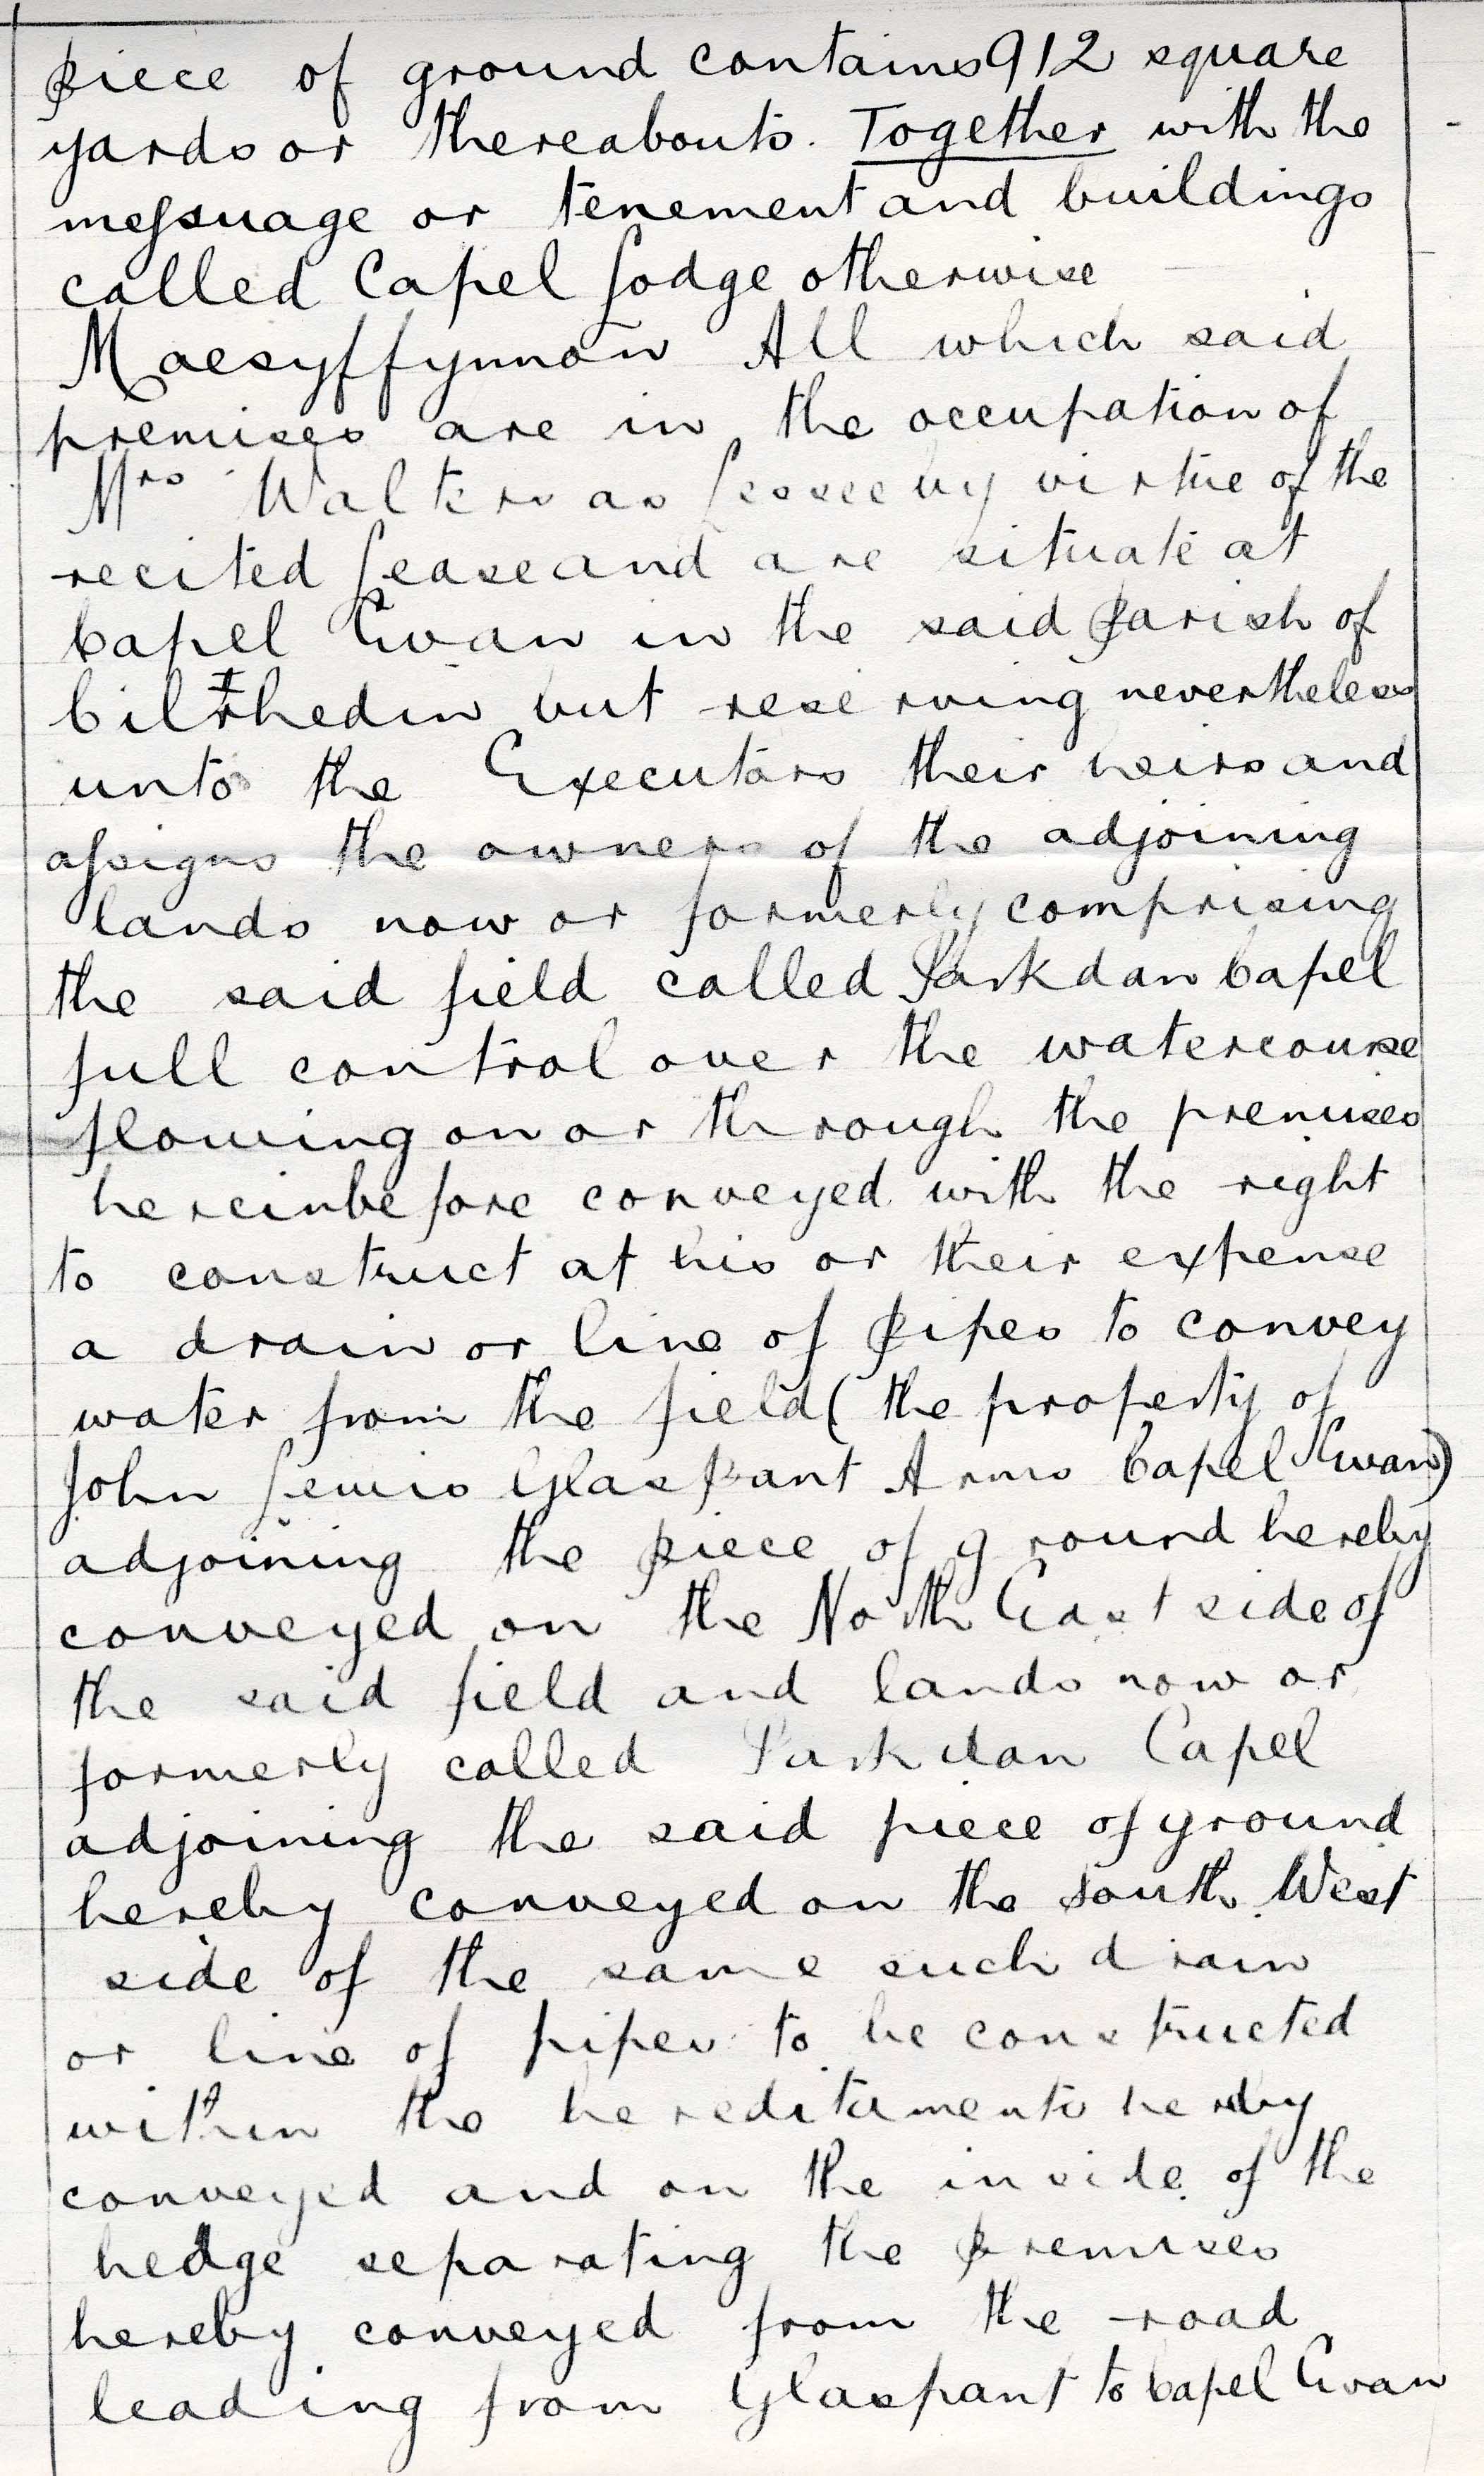 piece of ground contains 912 square
yards or thereabouts. Together with the
messuage or tenement and buildings
called Capel Lodge otherwise
Maesyffynnon All which said
premises are in the occupation of
Mrs Walters as Lessee by virtue of the
recited Lease and are situate at
Capel Evan in the said parish of
Cilrhedin but reserving nevertheless
unto the Executors their heirs and
assigns the owners of the adjoining
lands now or formerly comprising
the said field called Parkdan Capel
full control over the watercourse
flowing on or through the premises
hereinbefore conveyed with the right
to construct at his or their expense
a drain or line of pipes to convey
water from the field (the property of
John Lewis Glaspant Arms Capel Evan)
adjoining the piece of ground hereby
conveyed on the North East side of
the said field and lands now or
formerly called Parkdan Capel
adjoining the said piece of ground
hereby conveyed on the South West
side of the same such drain
or line of pipes to be constructed
within the hereditaments hereby
conveyed and on the inside of the
hedge separating the premises
hereby conveyed from the road
leading from Glaspant to Capel Evan